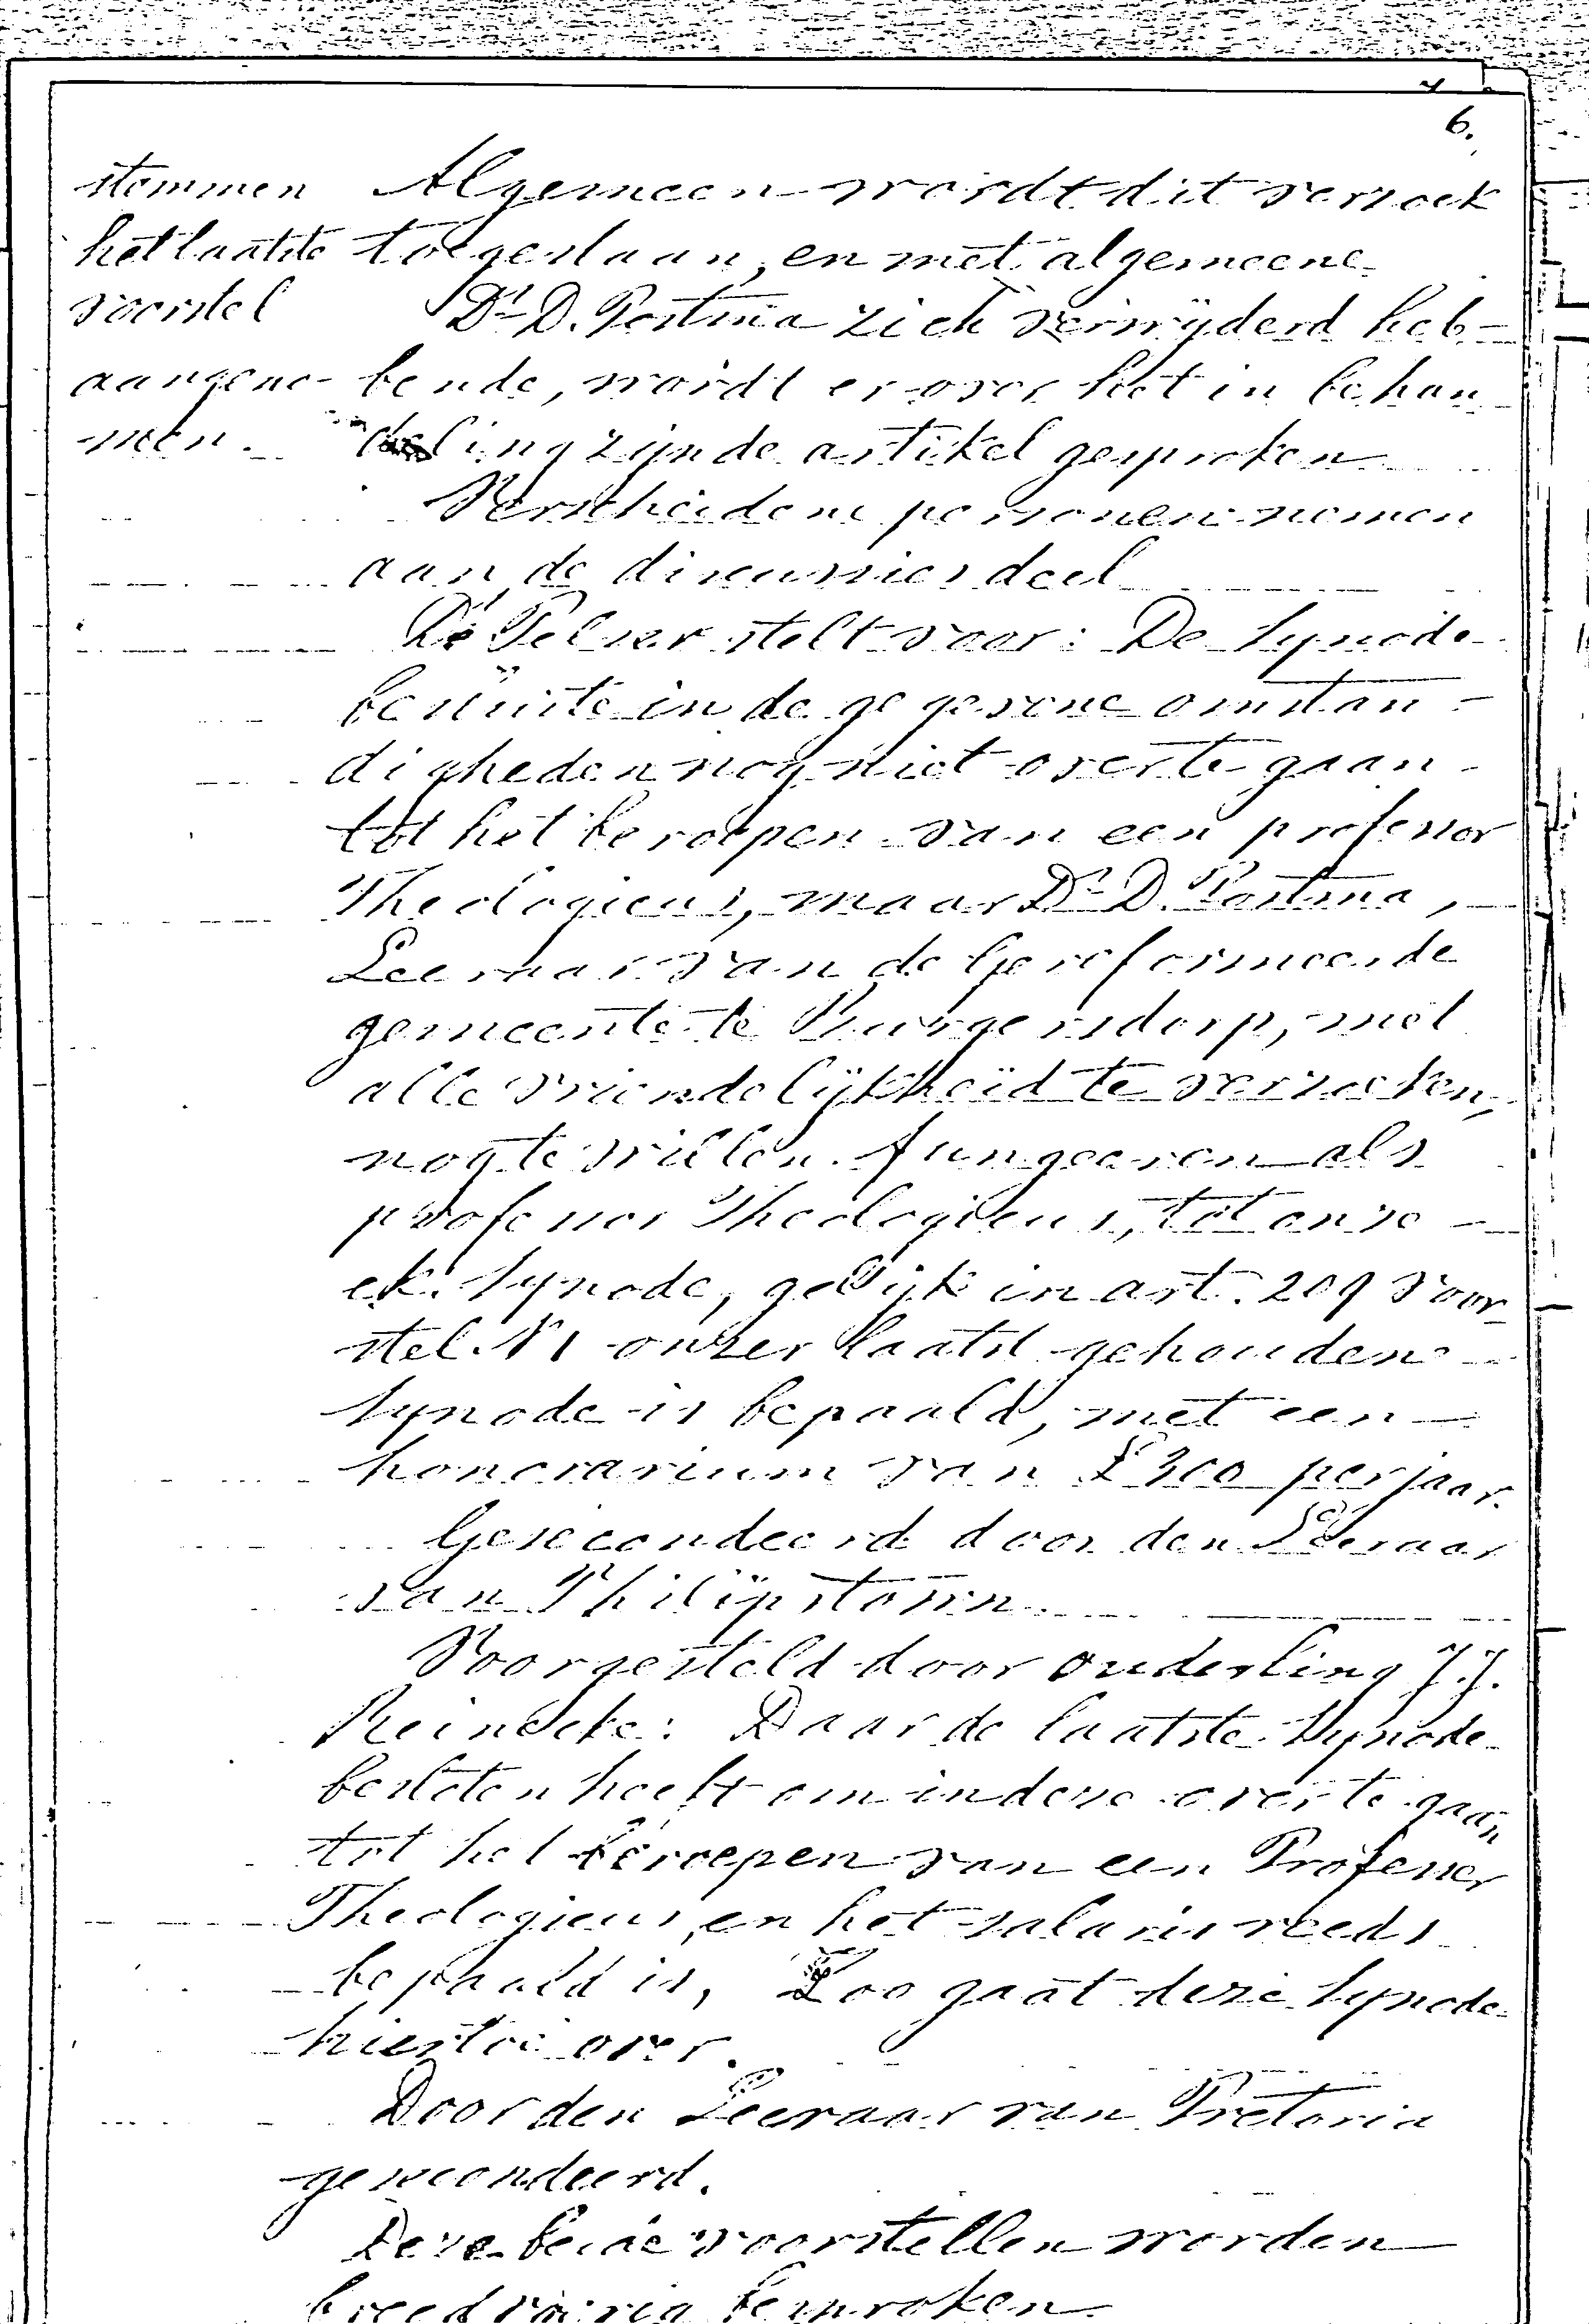 6.
stemmen Algemeen wordt dit verzoek
het laatste toegestaan, en met algemeene
voorstel Ds D. Postma zich verwijderd heb-
aangeno- bende, wordt er over het in behan
men. deling zijnde artikel gesproken
Verscheidene personen nemen
aan de discussies deel
Ds Pelser stelt voor: De Synode
besluite in de gegevene omstan-
digheden nog niet over te gaan
tot het beroepen van een professor
Theologicus, maar Ds D. Postma,
Leeraar van de Gereformeerde
gemeente te Burgersdorp, met
alle vriendelijkheid te verzoeken,
nog te willen fungeeren als
professor Theologicus, tot onze
ek. Synode, gelijk in art. 209 voor
stel N1 onzer laatst gehoudene
Synode is bepaald, met een
honorarium van £300 per jaar.
Gesecondeerd door den Leeraar
van Philipstown
Voorgesteld door ouderling J.J.
Reinecke: Daar de laatste Synode
besloten heeft om in deze over te gaan
tot het beroepen van een Professor
Theologicus, en het salaris reeds
bepaald is, Zoo gaat deze Synode
hiertoe over.
Door den Leeraar van Pretoria
gesecondeerd.
Deze beide voorstellen worden
breedvoerig besproken